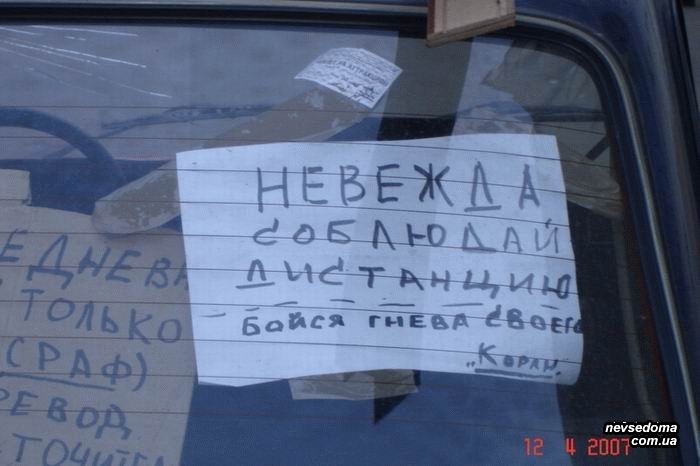 НЕВЕЖДА
СОБЛЮДАЙ
ДИСТАНЦИЮ
БОЙСЯ ГНЕВА СВОЕГО
"КОРАН"
ЕДНЕВА
ТОЛЬКО
СРАФ)
РЕВОД
ТОЧИТЕ
12 4 2007
nevsedoma
com.ua